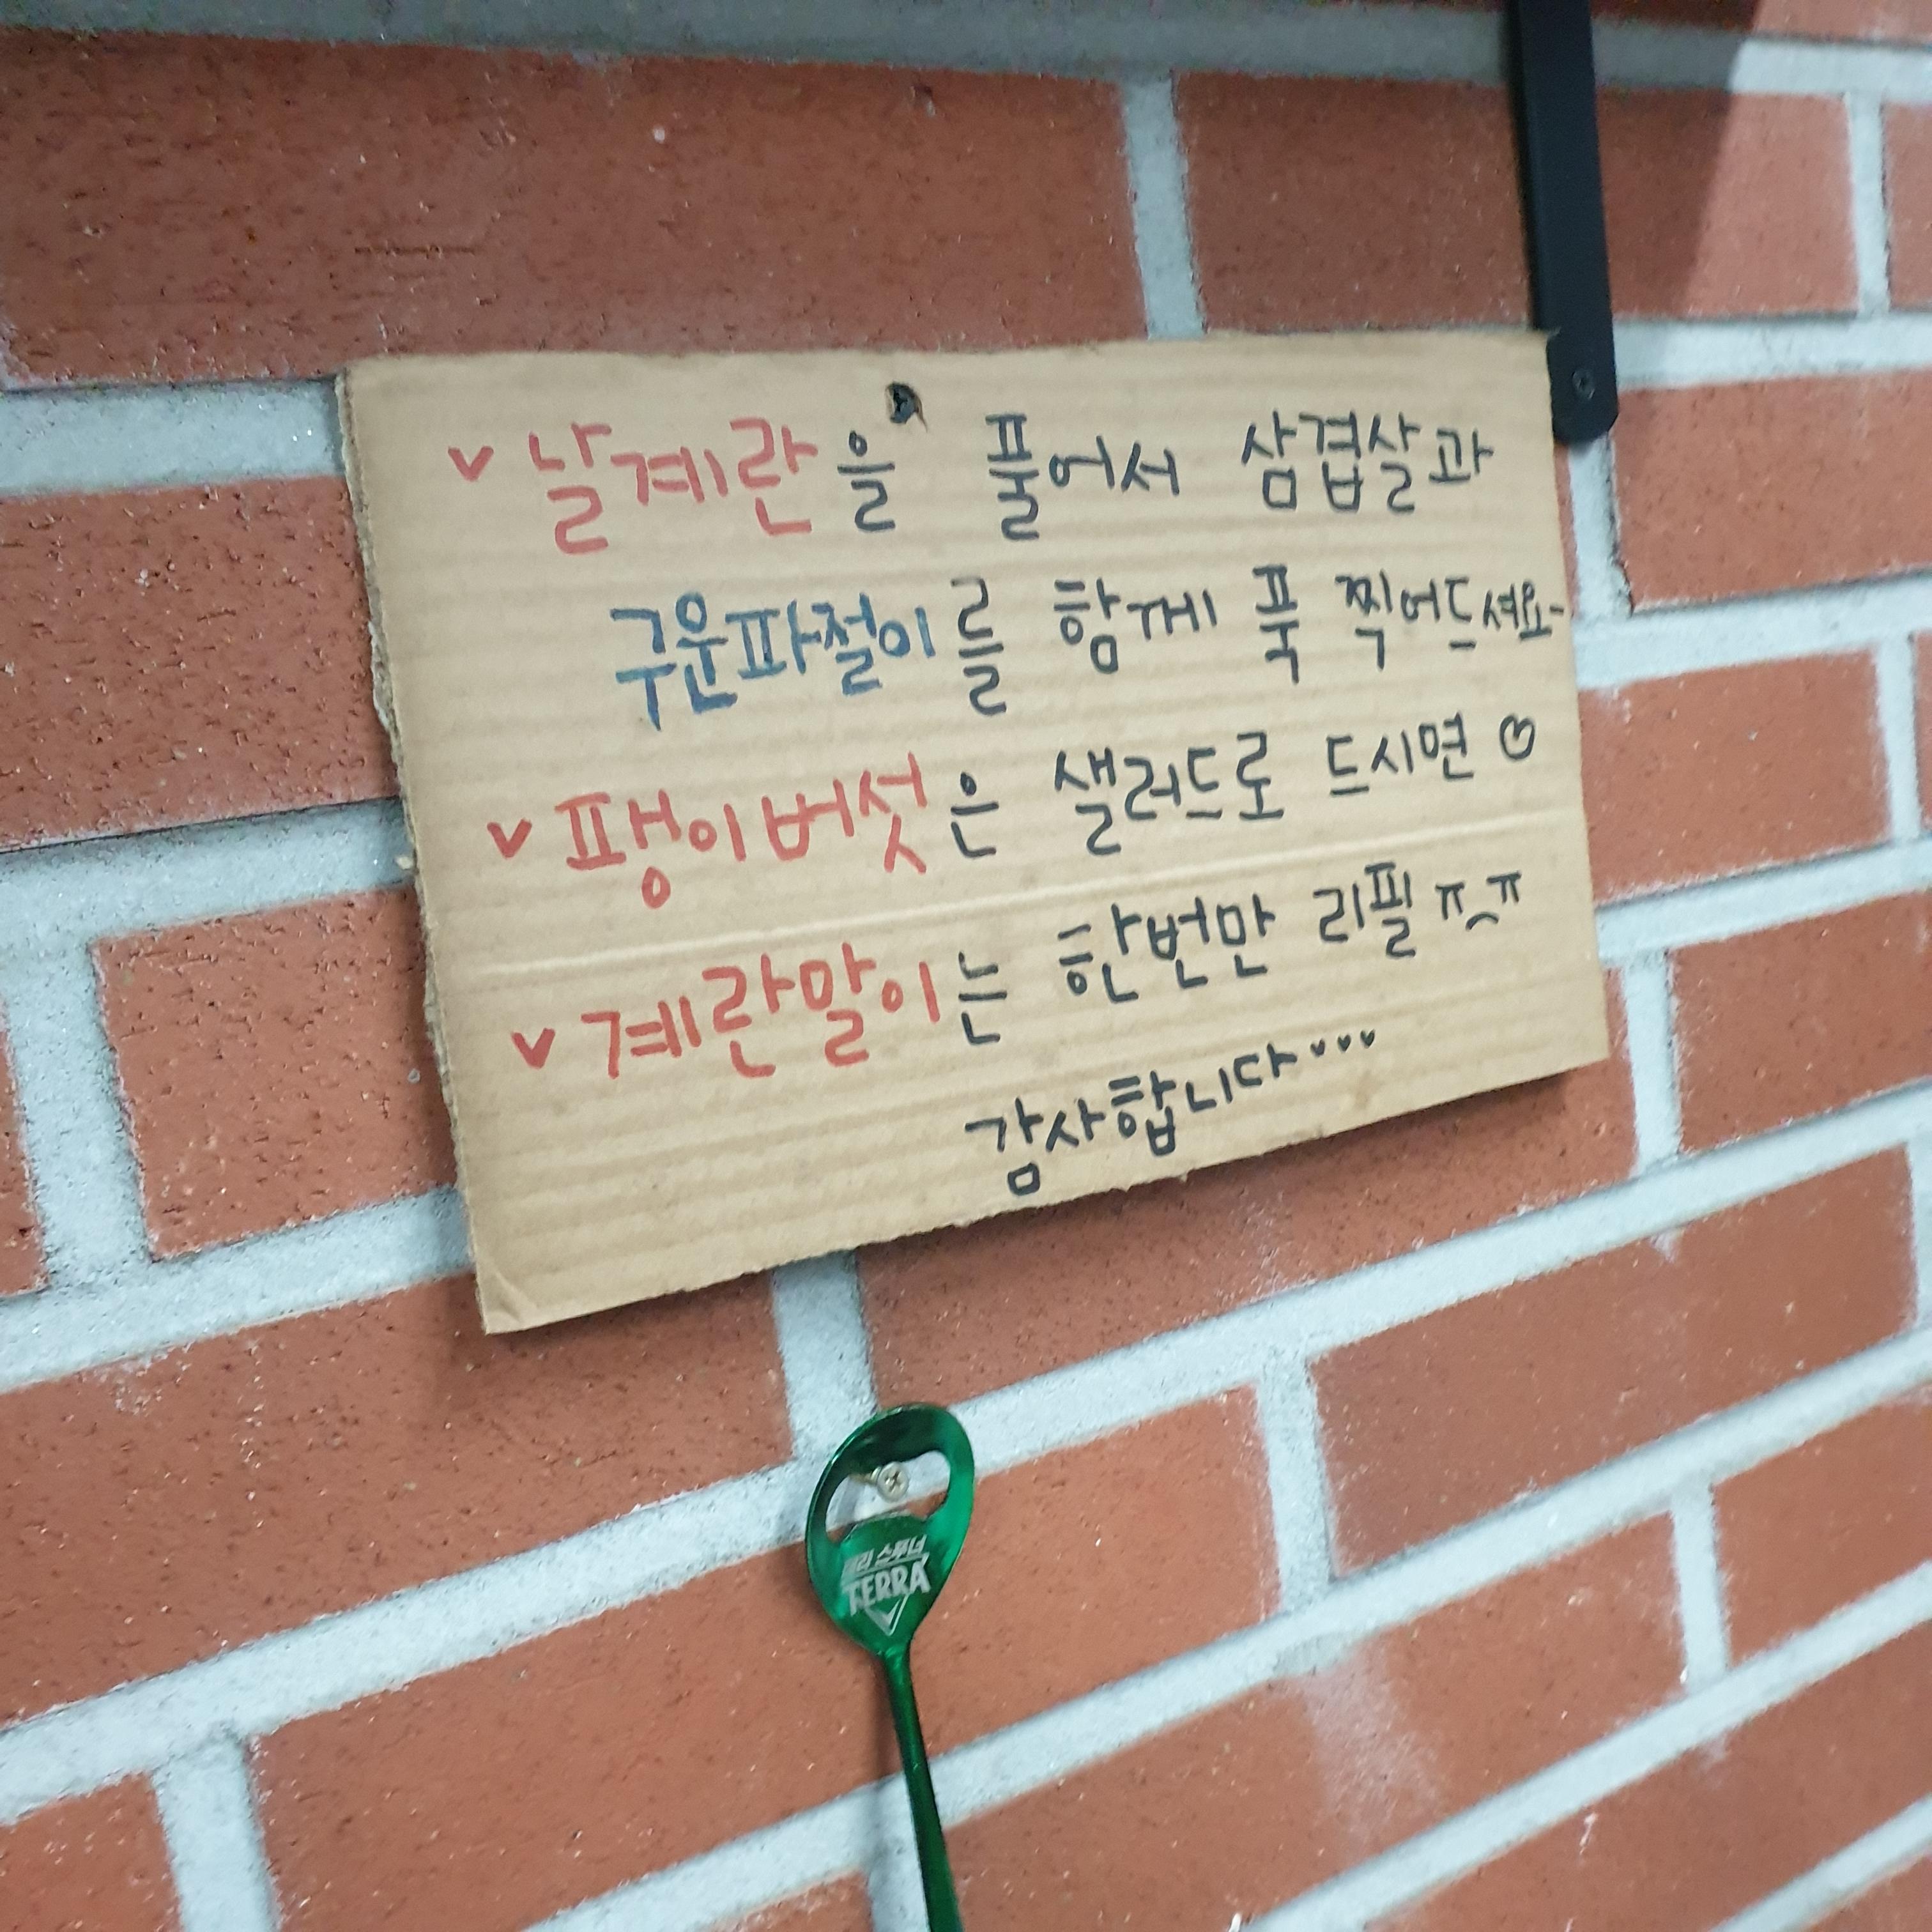 v 날계란을 풀어서 삼겹살과
구운파절이를 함께 푹 찍어드셔요~
v 팽이버섯은 샐러드로 드시면
v 계란말이는 한번만 리필 ㅠ_ㅠ
감사합니다...
스푸너
TERRA